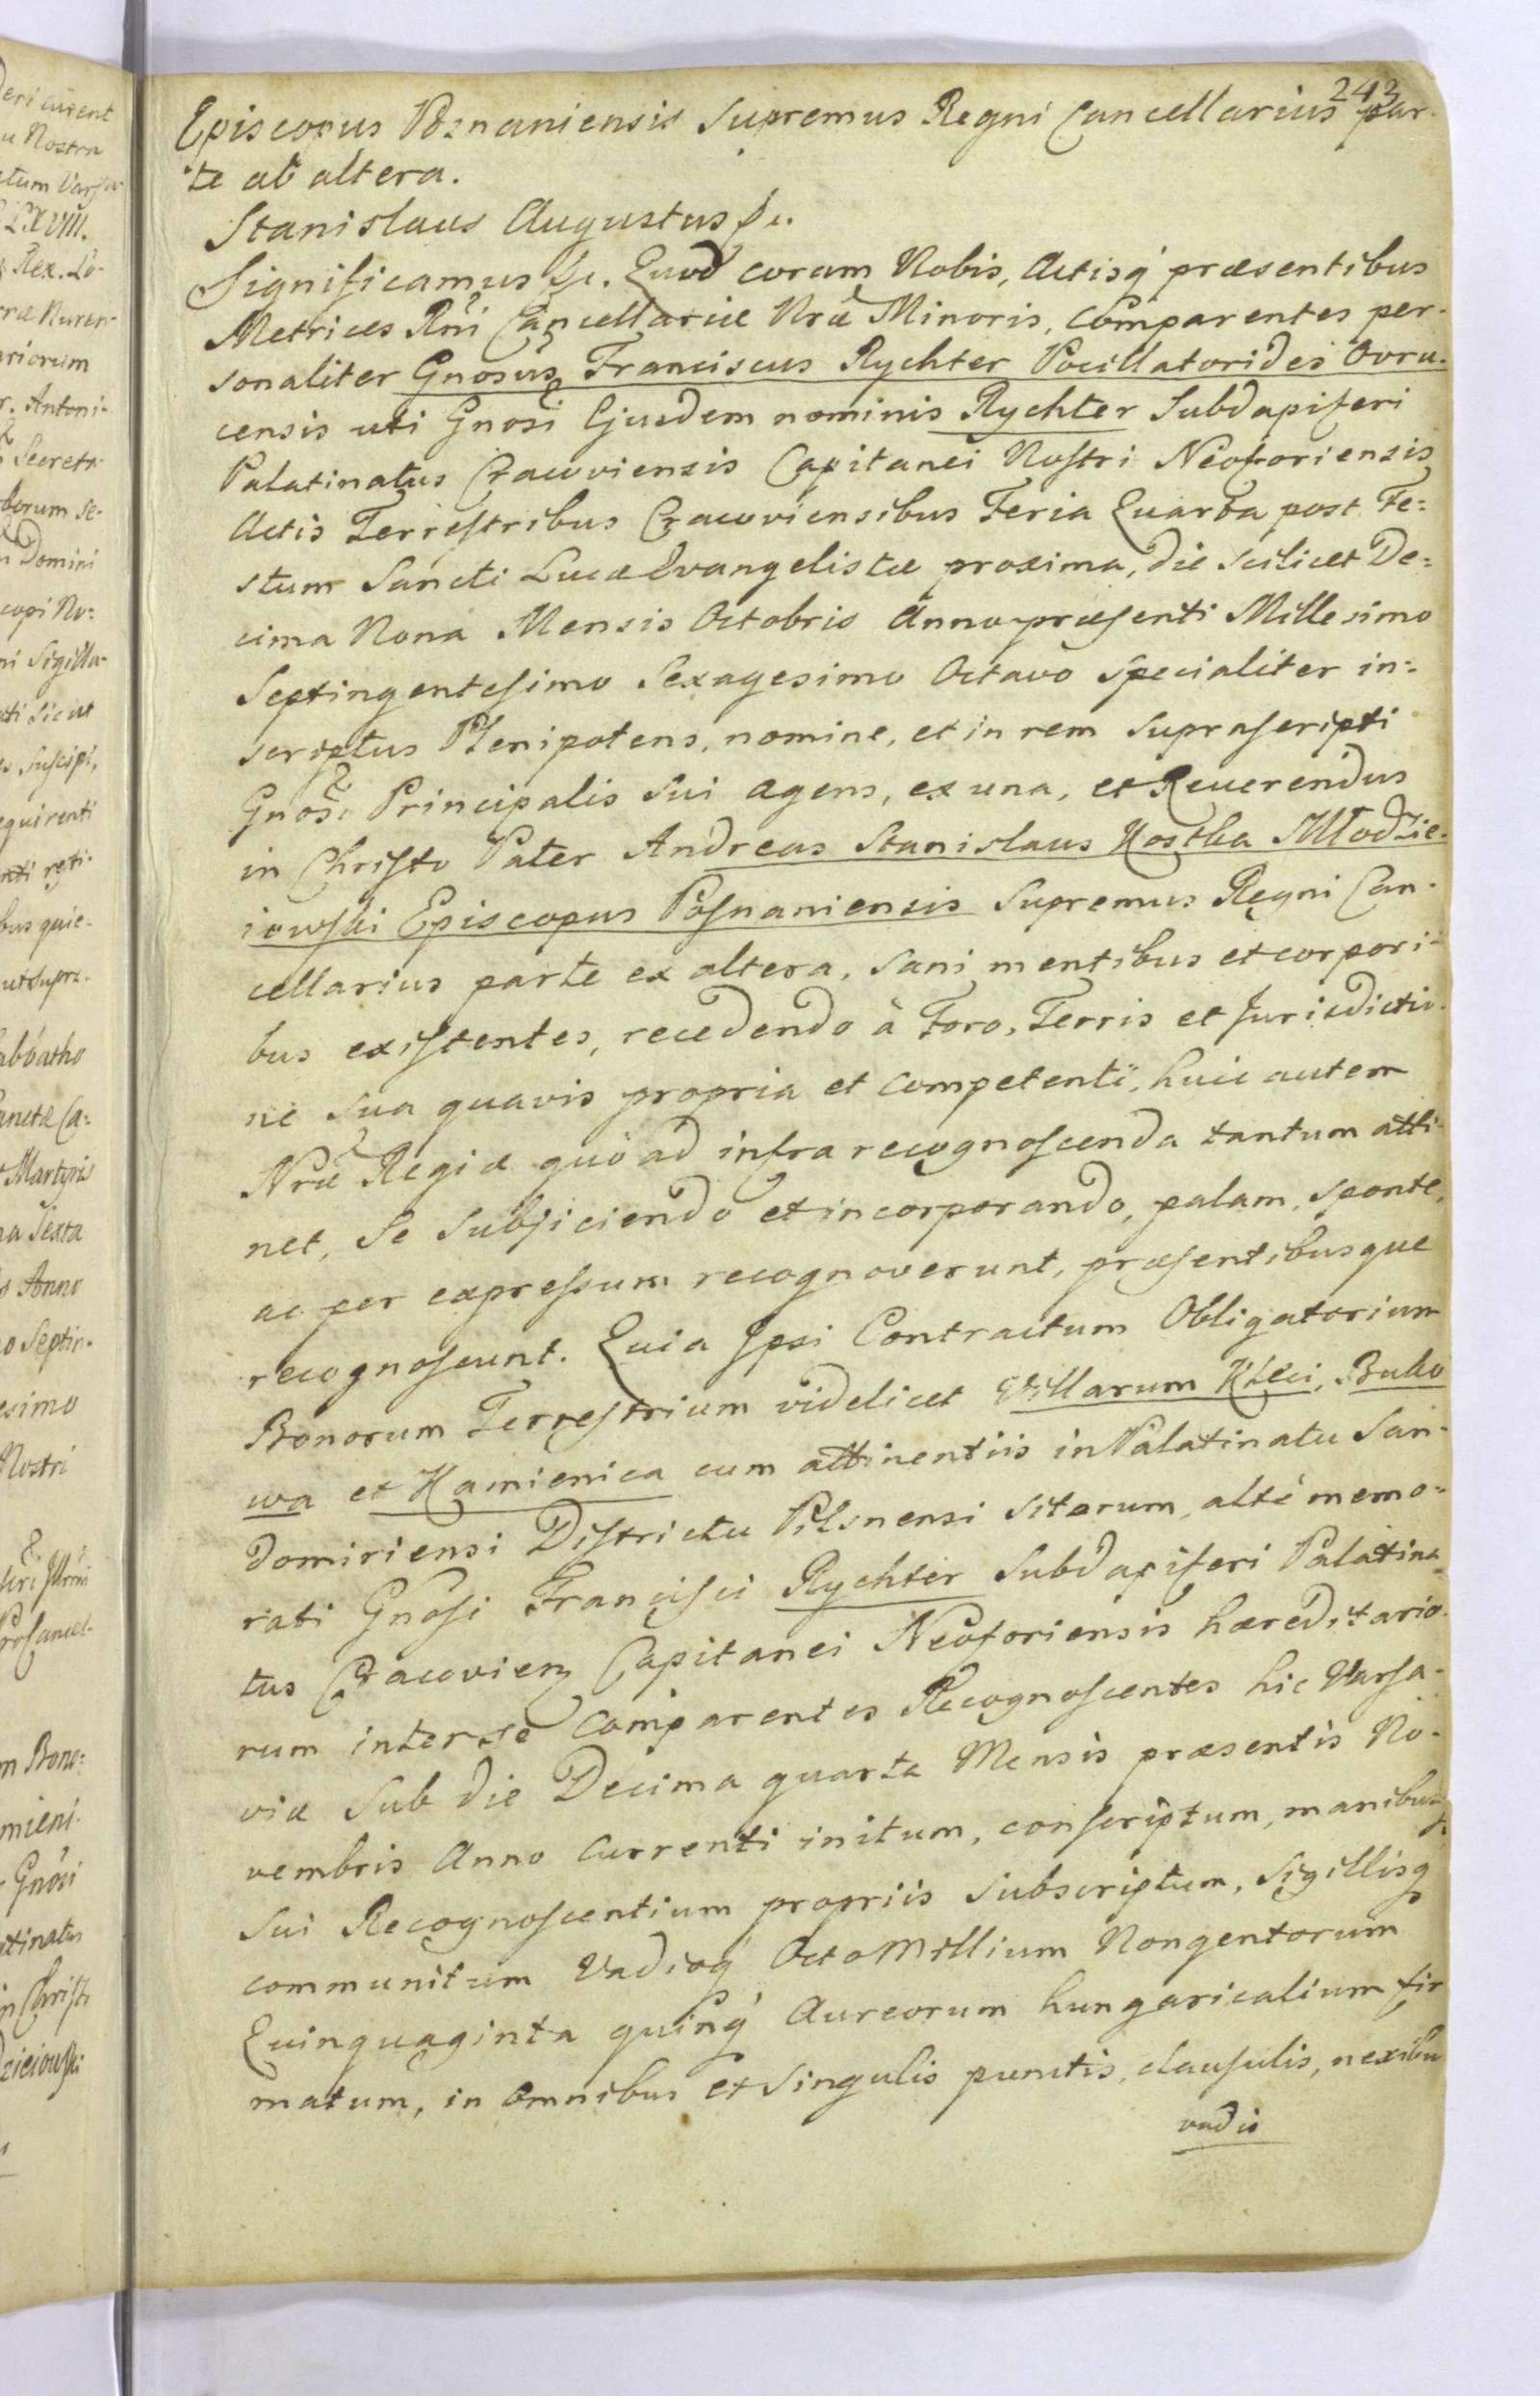 243
Episcopus Poznaniensis Supremus Regni Cancellarius par-
te ab altera.
Stanislaus Augustus &c.
Significamus &c. Quod coram Nobis, Actisq' præsentibus
Metrices Rñi Cancellariæ Nræ Minoris, Comparentes per-
sonaliter Gnosus Franciscus Rychter Pocillatorides Ovru-
censis uti Gnosi Ejusdem nominis Rychter Subdapiferi
Palatinatus Cracoviensis Capitanei Nostri Neoforiensis
Actis Terrestribus Cracoviensibus Feria Quarta post Fe=
stum Sancti Lucæ Evangelistæ proxima, die scilicet De=
cima Nona Mensis Octobris Anno præsenti Millesimo
Septingentesimo Sexagesimo Octavo specialiter in=
scriptus Plenipotens, nomine, et in rem suprascripti
Gnosi Principalis sui agens, ex una, et Reverendus
in Christo Pater Andreas Stanislaus Kostka Młodzie-
iowski Episcopus Posnaniensis Supremus Regni Can-
cellarius parte ex altera, sani mentibus et corpori-
bus existentes, recedendo à Foro, Terris et Jurisdictio-
ne sua quavis propria et competenti, huic autem
Nræ Regiæ quò ad infra recognoscenda tantum atti-
net, se subjiciendo et incorporando, palam, sponte,
ac per expressum recognoverunt, præsentibusque
recognoscunt. Quia Ipsi Contractum Obligatorium
Bonorum Terrestrium videlicet Villarum Kleci, Buko
wa et Kamienica cum attinentiis in Palatinatu San-
domiriensi Districtu Pilsnensi sitarum, altè memo-
rati Gnosi Francisci Rychter Subdapiferi Palatina
tus Cracovien Capitanei Neoforiensis hæreditario-
rum inter se Comparentes Recognoscentes hic Varsa-
viæ sub die Decima quarta Mensis præsentis No-
vembris Anno Currenti initum, conscriptum, manibusq
sui Recognoscentium propriis subscriptum, sigillisq
communitum Vadioq' Octo Millium Nongentorum
Quinquaginta quinq' Aureorum hungaricalium fir
matum, in omnibus et singulis punctis, clausulis, nexibu
vadio